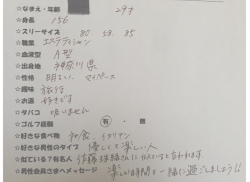 ☆なまえ・年齢 29才
☆身長 156
☆スリーサイズ 80 58 85
☆職業 エステティシャン
☆血液型 A型
☆出身地 神奈川県
☆性格 明るい、マイペース
☆趣味 旅行
☆お酒 好きです
☆タバコ 吸いません
☆ゴルフ経験 有・無
☆好きな食べ物 和食、イタリアン
☆好きな男性のタイプ 優しくて楽しい人
☆似ている?有名人 佐藤珠緒さんに似ていると言われます。
☆男性会員さまへメッセージ 楽しい時間を一緒に過ごしましょう!!